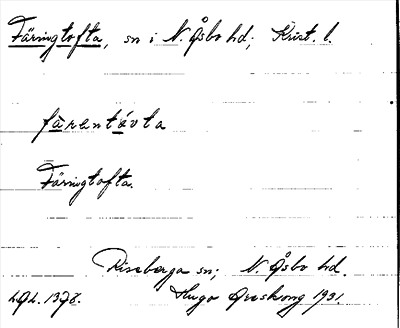 Färingtofta, sn i N. Åsbo hd; Krist. l.
fàrentȯ́vta
Färingtofta.
Riseberga sn; N. Åsbo hd.
Hugo Areskoug 1931.